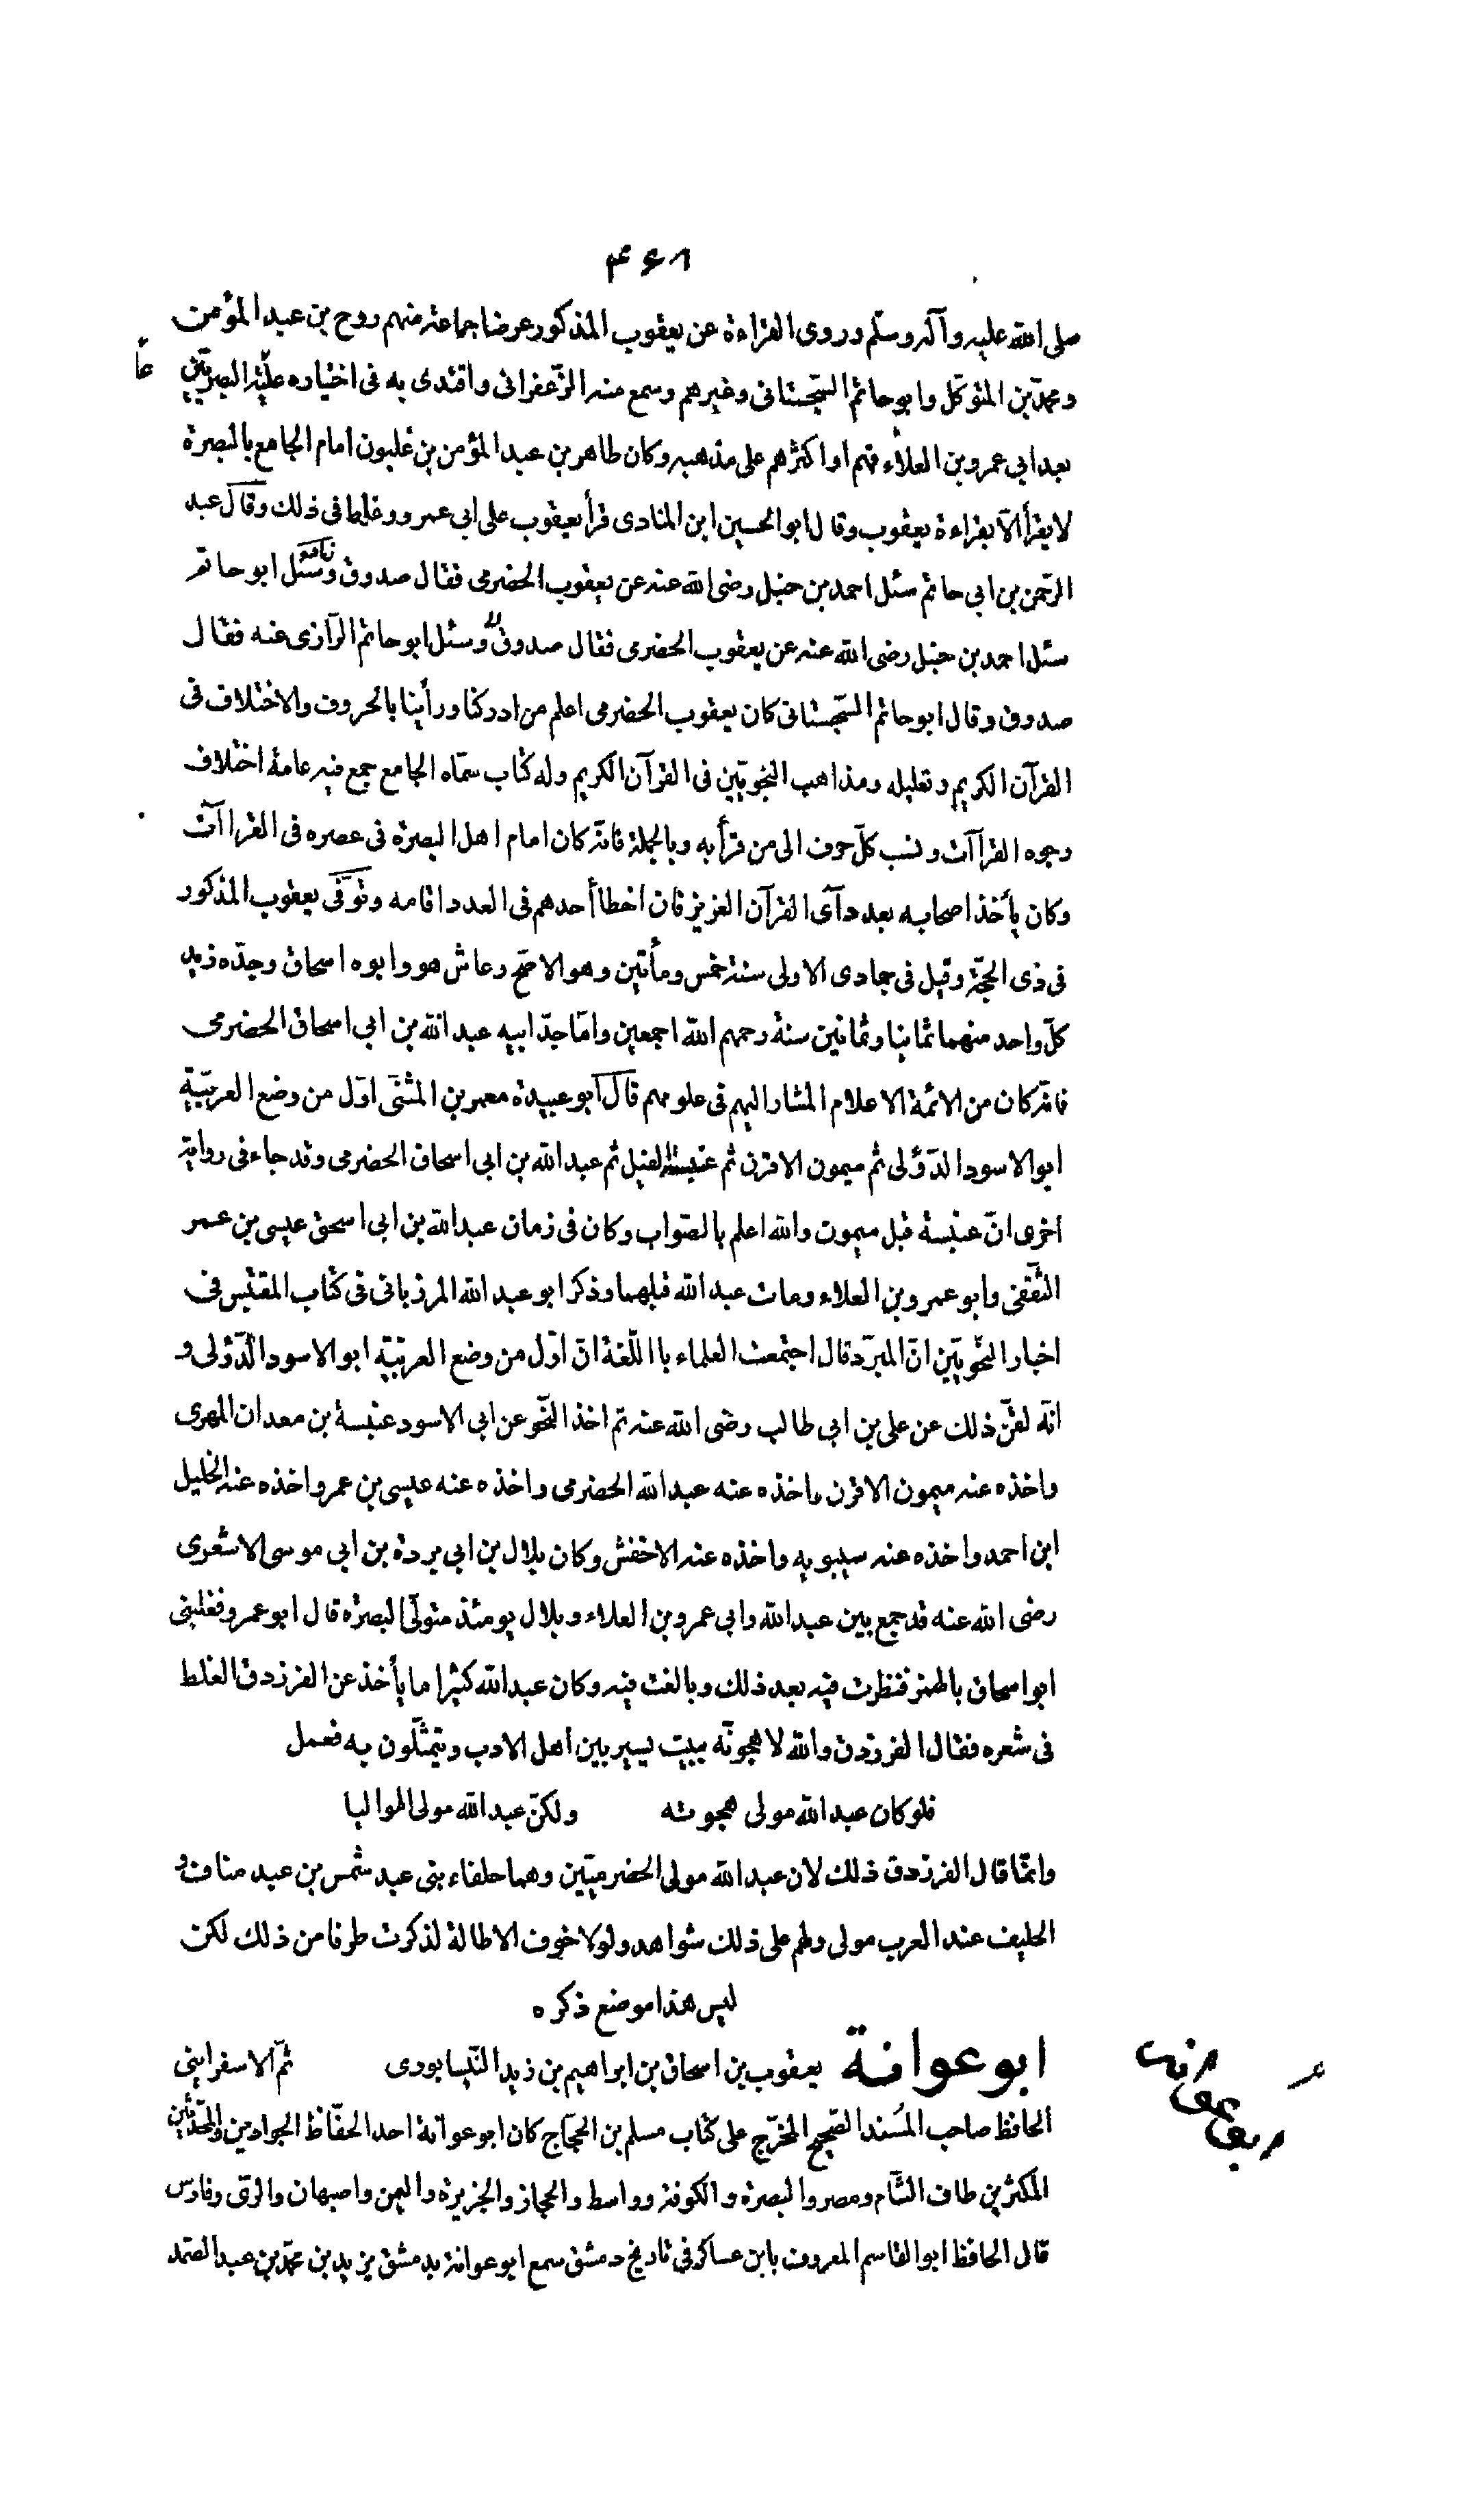 ۴۶۸
صلى الله عليه وآله وسلم وروى القراءة عن يعقوب المذكور عرضا جماعة منهم روح بن عبد المؤمن
ومحمد بن المتوكّل وابو حاتم السّجستانى وغيرهم وسمع منه الزّعفرانى واقتدى به فى اختياره عامّة البصريّين
بعد ابى عمرو بن العلاء فهم او اكثرهم على مذهبه وكان طاهر بن عبد المؤمن بن غلبون امام الجامع بالبصرة
لا يقرأ الّا بقراءة يعقوب وقال ابو الحسين ابن المنادى قرأ يعقوب على ابى عمرو وغلط فى ذلك وقال عبد
الرّحمن بن ابى حاتم سئل احمد بن حنبل رضى الله عنه عن يعقوب الحضرمى فقال صدوق وسئل ابو حاتم
سئل احمد بن حنبل رضى الله عنه عن يعقوب الحضرمى فقال صدوق وسئل ابو حاتم الرّازى عنه فقال
صدوق وقال ابو حاتم السّجستانى كان يعقوب الحضرمى اعلم من ادركنا ورأينا بالحروف والاختلاف فى
القرآن الكريم وتعليله ومذاهب النحويّين فى القرآن الكريم وله كتاب سمّاه الجامع جمع فيه عامة اختلاف
وجوه القرآآت ونسب كلّ حرف الى من قرأ به وبالجملة فانّه كان امام اهل البصرة فى عصره فى القراآت
وكان يأخذ اصحابه بعدد آى القرآن العزيز فان اخطأ أحدهم فى العدد اقامه وتوّفى يعقوب المذكور
فى ذى الحجّة وقيل فى جمادى الاولى سنة خمس ومأتين وهو الاصّح وعاش هو وابوه اسحاق وجدّه زيد
كلّ واحد منهم ثمانيا وثمانين سنة رحمهم الله اجمعين وامّا جدّ ابيه عبد الله بن ابى اسحاق الحضرمى
فانّه كان من الائمة الاعلام المشار اليهم فى علومهم قال ابو عبيدة معمر بن المثنّى اوّل من وضع العربيّة
ابو الاسود الدّؤلى ثم ميمون الاقرن ثم عنبسة الفيل ثم عبد الله بن ابى اسحاق الحضرمى وقد جاء فى رواية
اخرى انّ عنبسة قبل ميمون والله اعلم بالصّواب وكان فى زمان عبد الله بن ابى اسحق عيسى بن عمر
الثّقفى وابو عمرو بن العلاء ومات عبد الله قبلهما وذكر ابو عبد الله المرزبانى فى كتاب المقتبس فى
اخبار النحّويّين انّ المبرّد قال اجتمعت العلماء باللّغة انّ اوّل من وضع العربيّة ابو الاسود الدّؤلى و
انّه لقّن ذلك عن على بن ابى طالب رضى الله عنه ثم اخذ النّحو عن ابى الاسود عنبسة بن معدان المهرى
واخذه عنه ميمون الاقرن واخذه عنه عبد الله الحضرمى واخذه عنه عيسى بن عمر واخذه عنه الخليل
ابن احمد واخذه عنه سيبويه واخذه عنه الاخفش وكان بلال بن ابى بردة بن ابى موسى الاشعرى
رضى الله عنه قد جمع بين عبد الله وابى عمرو بن العلاء وبلال يومئذ متولّى البصرة قال ابو عمرو فغلبنى
ابو اسحاق بالهمز فنظرت فيه بعد ذلك وبالغت فيه وكان عبد الله كثيرا ما يأخذ عن الفرزدق الغلط
فى شعره فقال الفرزدق والله لاهجونّه ببيت يسير بين اهل الادب ويتمثّلون به فعمل
فلو كان عبد الله مولى هجوته ولكنّ عبد الله مولى المواليا
وانّما قال الفرزدق ذلك لان عبد الله مولى الحضرميّين وهما حلفاء بنى عبد شمس بن عبد مناف و
الحليف عند العرب مولى ولهم على ذلك شواهد ولولا خوف الاطالة لذكرت طرفا من ذلك لكن
ليس هذا موضع ذكره
ابو عوانة يعقوب بن اسحاق بن ابراهيم بن زيد النّيسابورى ثمّ الاسفراينى
الحافظ صاحب المُسند الصّحيح المخّرج على كتاب مسلم بن الحجّاج كان ابو عوانة احد الحفّاظ الجوادين والمحّدثين
المكثرين طاف الشّام ومصر والبصرة والكوفة وواسط والحجاز والجزيرة واليمن واصبهان والرّى وفارس
قال الحافظ ابو القاسم المعروف بابن عساكر فى تاريخ دمشق سمع ابو عوانة بدمشق يزيد بن محمّد بن عبد الصّمد